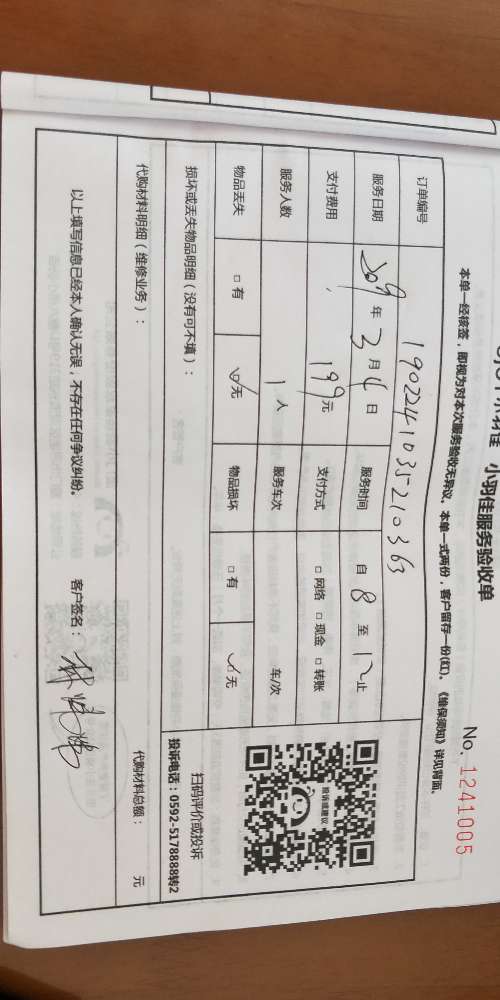 小羽佳服务验收单
No. 1241005
本单一经核签，即视为对本次服务验收无异议。本单一式两份，客户留存一份(红)。《维保须知》详见背面。
订单编号 1902241035210363
服务日期 2019年3月4日 服务时间 自8至12止
支付费用 199元 支付方式 □网络 □现金 □转账
服务人数 1人 服务车次 车/次
物品丢失 □有 ☑无 物品损坏 □有 ☑无
损坏或丢失物品明细（没有可不填）：
投诉或建议
扫码评价或投诉
投诉电话：0592-5178888转2
代购材料明细（维修业务）： 代购材料总额： 元
以上填写信息已经本人确认无误，不存在任何争议纠纷。 客户签名：